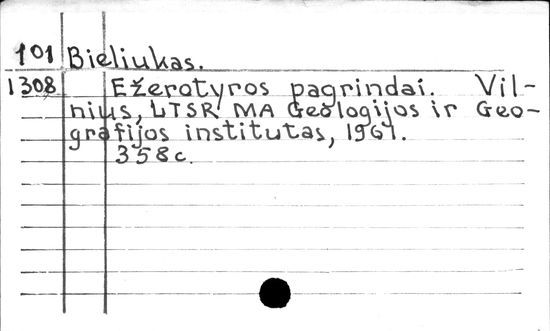 101 Bieliukas.
1308 Ežerotyros pagrindai. Vil-
nius, LTSR MA Geologijos ir Geo-
grafijos institutas, 1961.
358c.